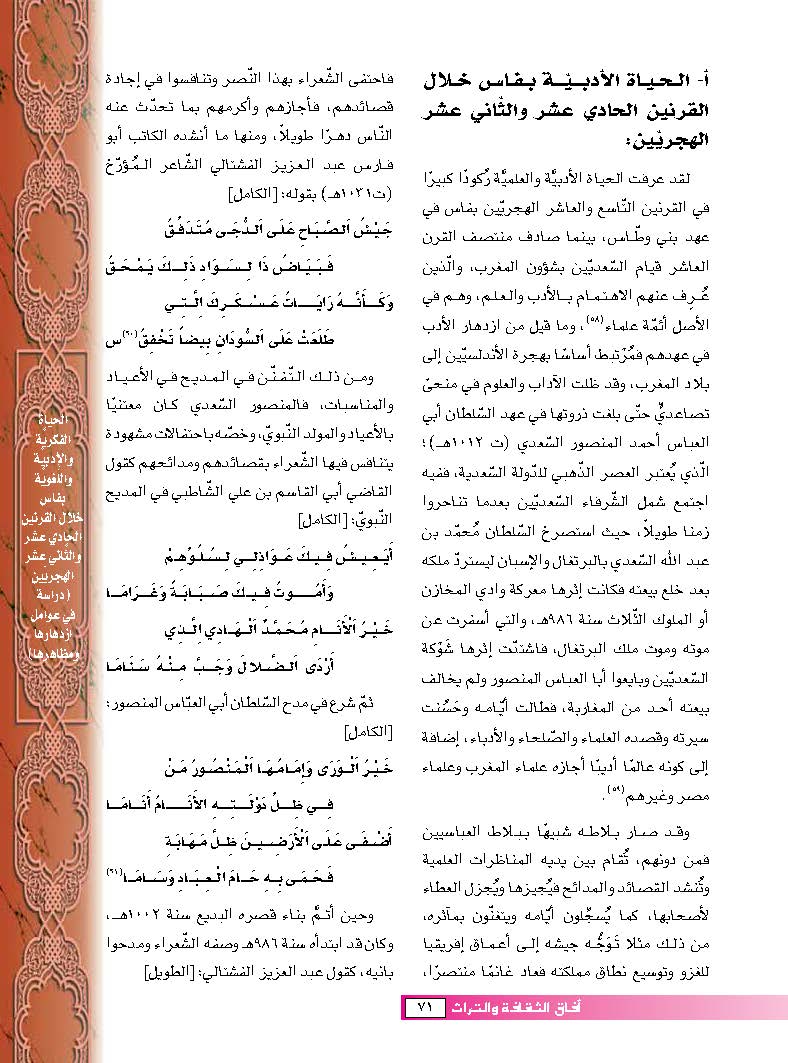 أ- الـحـيـاة الأدبـيّــة بـفـاس خـلال
القرنين الحادي عشر والثّاني عشر
الهجريّين:
لقد عرفت الحياة الأدبيَّة والعلميَّة رُكودًا كبيرًا
في القرنين التّاسع والعاشر الهجريّين بفاس في
عهد بني وطّاس، بينما صادف منتصف القرن
العاشر قيام السّعديّين بشؤون المغرب، والّذين
عُـرِف عنهم الاهتمـام بـالأدب والـعـلـم، وهـم في
الأصل أئمّة علماء(٥٨)، وما قيل من ازدهار الأدب
في عهدهم فمُرْتبط أساسًا بهجرة الأندلسيّين إلى
بلاد المغرب، وقد ظلت الآداب والعلوم في منحىً
تصاعديٍّ حتّى بلغت ذروتها في عهد السّلطان أبي
العباس أحمد المنصور السّعدي (ت ١٠١٢هـ)؛
الّذي يُعتبر العصر الذّهبي للدّولة السّعدية، ففيه
اجتمع شمل الشّرفاء السّعديّين بعدما تناحروا
زمنا طويلاً، حيث استصرخ السّلطان مُحمّد بن
عبد الله السّعدي بالبرتغال والإسبان ليستردّ ملكه
بعد خلع بيعته فكانت إثرها معركة وادي المخازن
أو الملوك الثّلاث سنة ٩٨٦هـ، والتي أسفرت عن
موته وموت ملك البرتغال، فاشتدّت إثرها شَوْكة
السّعديّين وبايعوا أبا العباس المنصور ولم يخالف
بيعته أحـد من المغاربة، فطالت أيّامه وحَسُنت
سيرته وقصده العلماء والصّلحاء والأدباء، إضافة
إلى كونه عالمًا أديبًا أجازه علماء المغرب وعلماء
مصر وغيرهم(٥٩).
وقـد صـار بـلاطـه شبيهًا ببـلاط العباسيين
فمن دونهم، تُقام بين يديه المناظرات العلمية
وتُنشد القصائد والمدائح فيُجيزها ويُجزل العطاء
لأصحابها، كما يُسجّلون أيّامه ويتغنّون بمآثره،
من ذلـك مثلا تَوَجُّـه جيشه إلـى أعمـاق إفريقيا
للغزو وتوسيع نطاق مملكته فعاد غانمًا منتصرًا،
فاحتفى الشّعراء بهذا النّصر وتنافسوا في إجادة
قصائدهم، فأجازهم وأكرمهم بما تحدّث عنه
النّاس دهـرًا طويلاً، ومنها ما أنشده الكاتب أبو
فـارس عبد العزيز الفشتالي الشّاعر الـمُؤرّخ
(ت١٠٣١هـ) بقوله: [الكامل]
جَـيْـشُ اَلـصَّـبَـاحِ عَـلَـى اَلـدُّجَـى مُـتَـدَفِّـقُ
فَـبَـيَـاضُ ذَا لِـسَـوَادِ ذَلِــكَ يَـمْـحَـقُ
وَكَــأَنَّــهُ رَايَـــاتُ عَـسْـكَـرِكَ الَّـتِـي
طَلَعَتْ عَلَى اَلسُّودَانِ بِيضاً تَخْفِقُ(٦٠)س
ومـن ذلـك الـتّفنّـن فـي المـديـح فـي الأعـيـاد
والمناسبات، فالمنصور السّعدي كـان معتنيًا
بالأعياد والمولد النّبويّ، وخصّه باحتفالات مشهودة
يتنافس فيها الشّعراء بقصائدهم ومدائحهم كقول
القاضي أبي القاسم بن علي الشّاطبي في المديح
النّبويّ: [الكامل]
أَيَـعِـيـشُ فِـيـكَ عَـوَاذِلِـي لِـسُـلُوِّهِـمْ
وَأَمُـــوتُ فِـيـكَ صَـبَـابَـةً وَغَـرَامَــا
خَـيْـرُ اَلْأَنَــامِ مُحَمَّـدٌ اَلْـهَـادِي الَّـذِي
أَرْدَى اَلـضَّـلَالَ وَجَـبَّ مِـنْـهُ سَـنَـامَا
ثمّ شرع في مدح السّلطان أبي العبّاس المنصور:
[الكامل]
خَـيْـرُ اَلْـوَرَى وَإِمَـامُـهَـا اَلْـمَـنْـصُـورُ مَـنْ
فِــي ظِــلِّ دَوْلَـتِــهِ اَلأَنَـــامُ أَنَـامَــا
أَضْـفَـى عَـلَـى اَلأَرَضِـيـنَ ظِـلَّ مَـهَـابَـةٍ
فَـحَـمَـى بِـهِ حَـامَ الْـعِـبَـادِ وَسَـامَـا(٦١)
وحين أتـمَّ بناء قصره البديع سنة ١٠٠٢هـ،
وكان قد ابتدأه سنة ٩٨٦هـ وصفه الشّعراء ومدحوا
بانيه، كقول عبد العزيز الفشتالي: [الطويل]
الحياة
الفكرية
والأدبية
واللغوية
بفاس
خلال القرنين
الحادي عشر
والثاني عشر
الهجريين
(دراسة
في عوامل
ازدهارها
ومظاهرها)
آفاق الثقافة والتراث ٧١